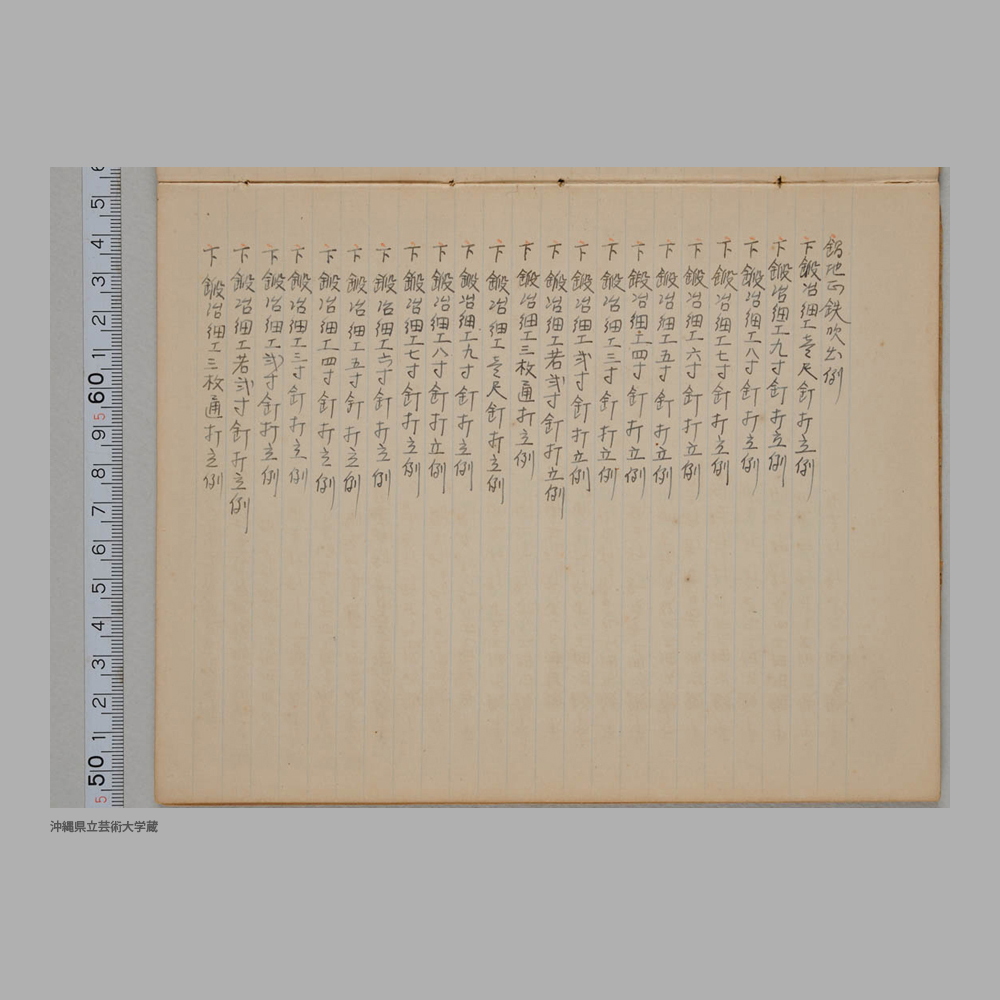 鍋地正鉄吹出例
下鍛冶細工壱尺釘打立例
下鍛冶細工九寸釘打立例
下鍛冶細工八寸釘打立例
下鍛冶細工七寸釘打立例
下鍛冶細工六寸釘打立例
下鍛冶細工五寸釘打立例
下鍛冶細工四寸釘打立例
下鍛冶細工三寸釘打立例
下鍛冶細工弐寸釘打立例
下鍛冶細工若弐寸釘打立例
下鍛冶細工三枚通打立例
下鍛冶細工壱尺釘打立例
下鍛冶細工九寸釘打立例
下鍛冶細工八寸釘打立例
下鍛冶細工七寸釘打立例
下鍛冶細工六寸釘打立例
下鍛冶細工五寸釘打立例
下鍛冶細工四寸釘打立例
下鍛冶細工三寸釘打立例
下鍛冶細工弐寸釘打立例
下鍛冶細工若弐寸釘打立例
下鍛冶細工三枚通打立例
5 50 1 2 3 4 5 6 7 8 9 5 60 1 2 3 4 5 6
沖縄県立芸術大学蔵